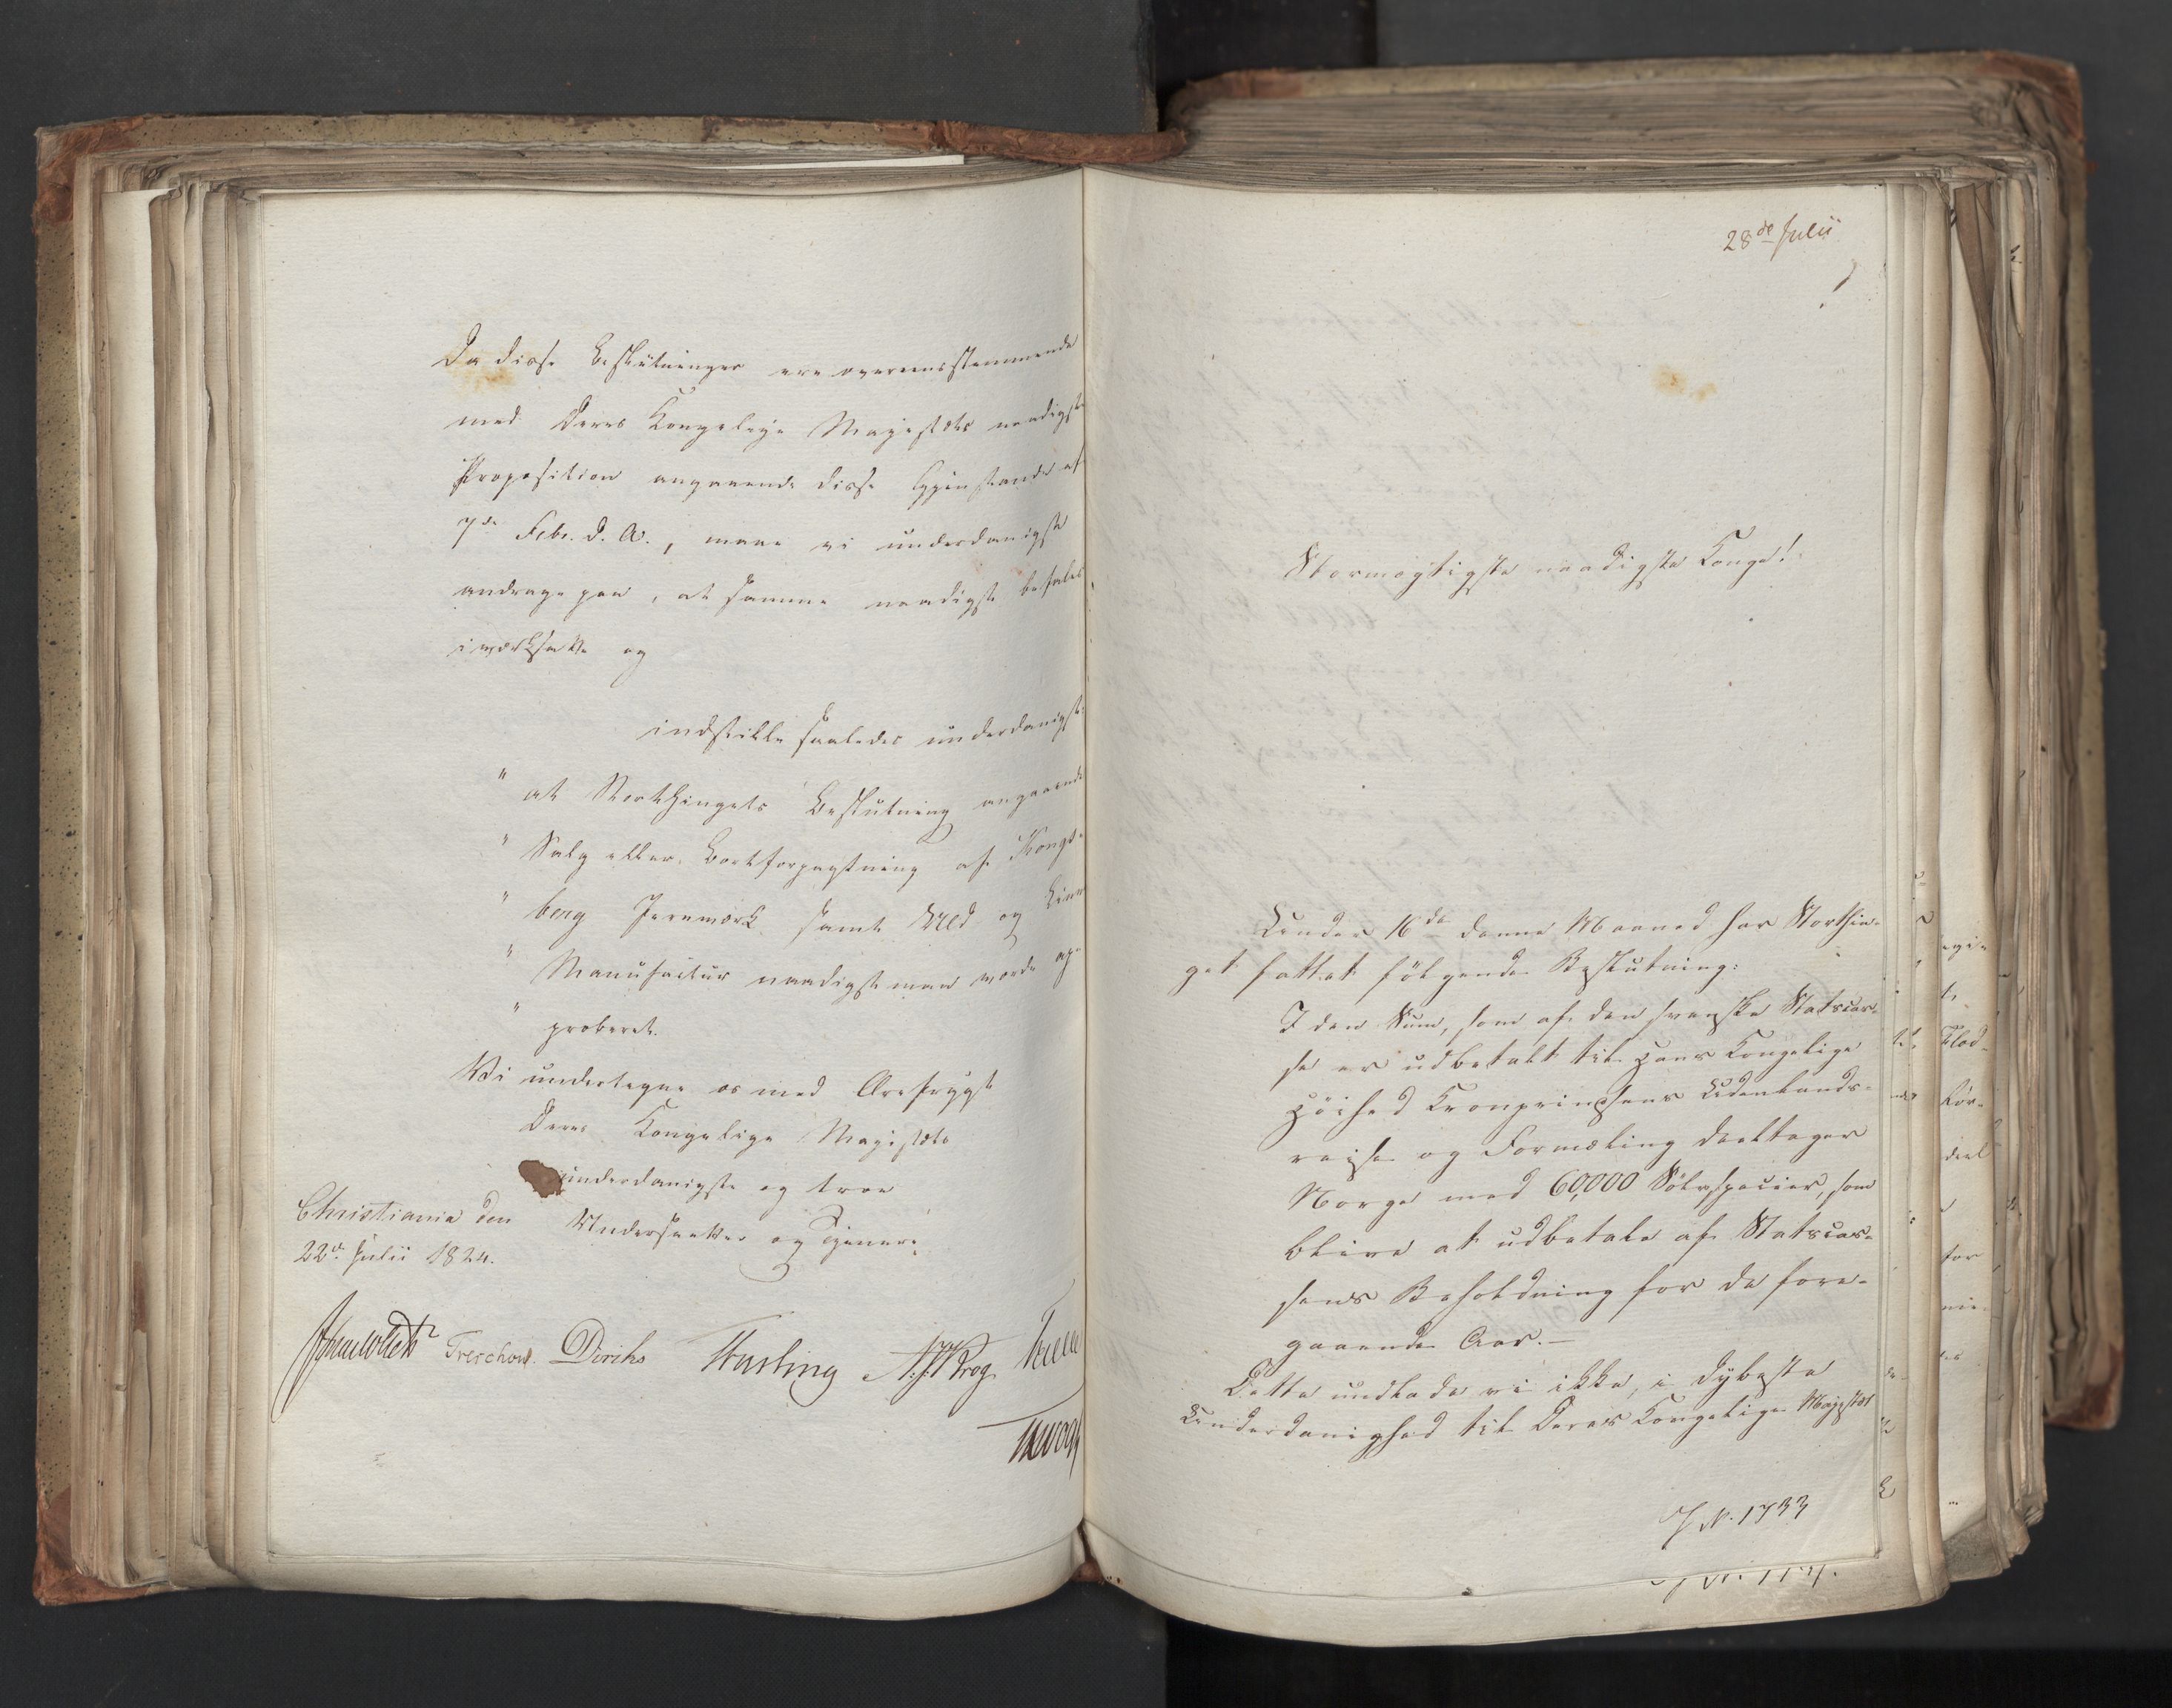 Da disse Beslutninger ere overeensstemmende
med Deres Kongelige Majestæts naadigste
Proposition angaaende disse Gjenstande af
7de Febr. d. A., maae vi underdanigst
andrage paa, at samme naadigst befales
iværksatte og
indstille saaledes underdanigst:
" at Storthingets Beslutning angaaende
" Salg eller Bortforpagtning af Kongs-
" berg Jernværk samt Uld og Linn
" Manufactur naadigst maa vorde ap-
" proberet.
Vi undertegne os med Ærefrygt
Deres Kongelige Majestæts
underdanigste og troe
Undersaatter og Tjenere
Christiania den
22de Julii 1824.
Treschow. Diriks Fasting
28de Julii
Stormægtigste naadigste Konge!
Under 16de denne Maaned har Storthin-
get fattet følgende Beslutning:
I den Sum, som af den svenske Statscas-
se er udbetalt til Hans Kongelige
Høihed Kronprinsens Udenlands-
reise og Formæling deeltager
Norge med 60,000 Sølvspecier, som
blive at udbetale af Statscas-
sens Beholdning for de fore-
gaaende Aar.—
Dette undlade vi ikke, i dybeste
Underdanighed til Deres Kongelige Majestæt
J N. 1733